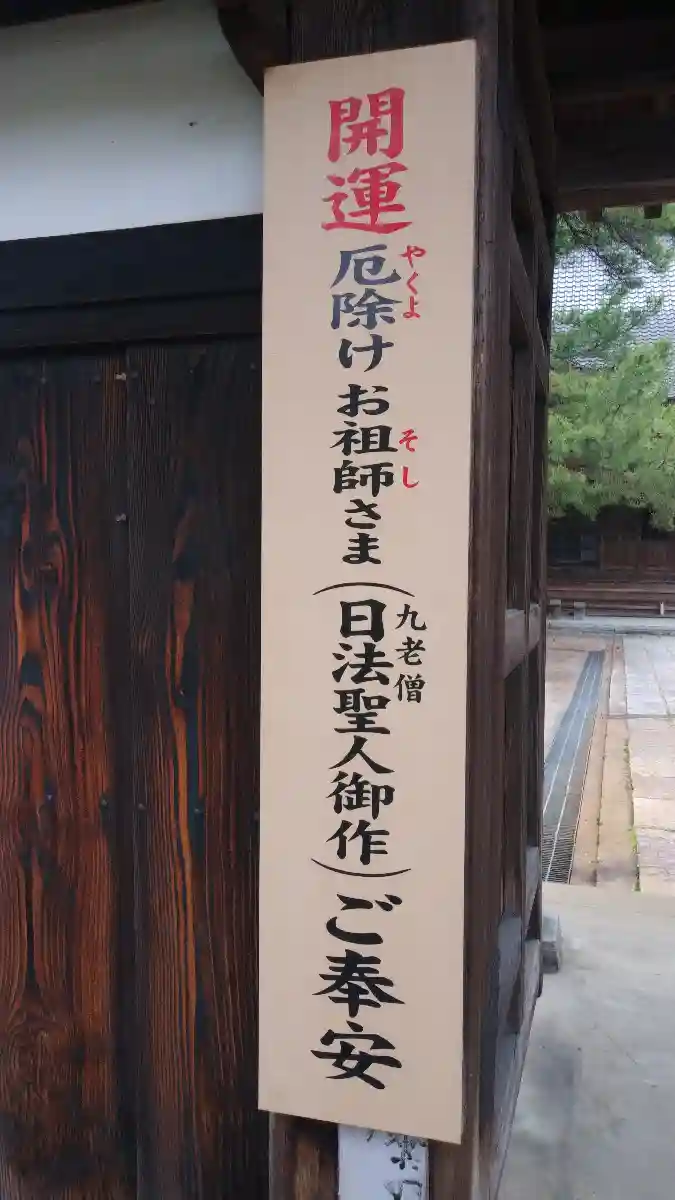 開運厄除けお祖師さま(日法聖人御作)ご奉安
やくよ
そし
九老僧